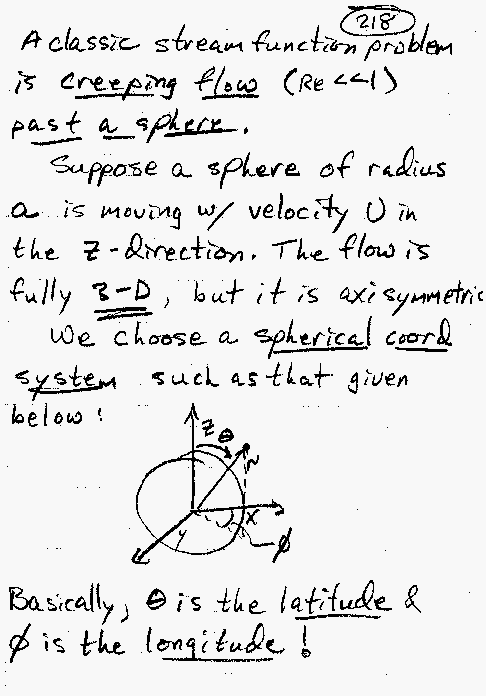 218
A classic stream function problem
is creeping flow (Re <<1)
past a sphere.
Suppose a sphere of radius
a is moving w/ velocity U in
the z-direction. The flow is
fully 3-D, but it is axisymmetric
We choose a spherical coord
system such as that given
below:
z θ
r
x
y
φ
Basically, θ is the latitude &
φ is the longitude!